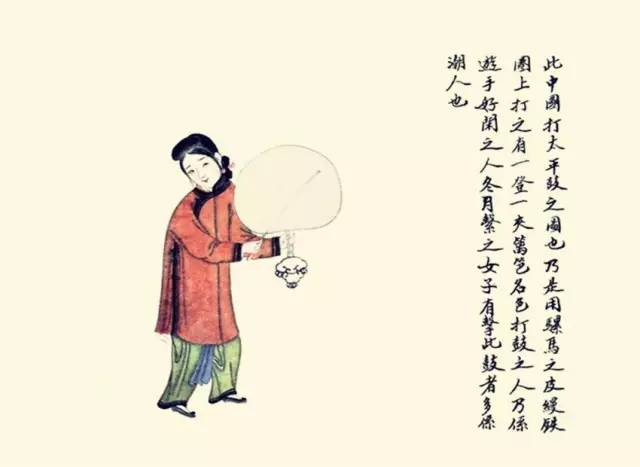 此中國打太平鼓之圖也乃是用騾馬之皮縵鉄
圈上打之有一登一夫笆名色打鼓之人乃係
遊手好閑之人冬月擊之女子有擊此鼓者多係
潮人也